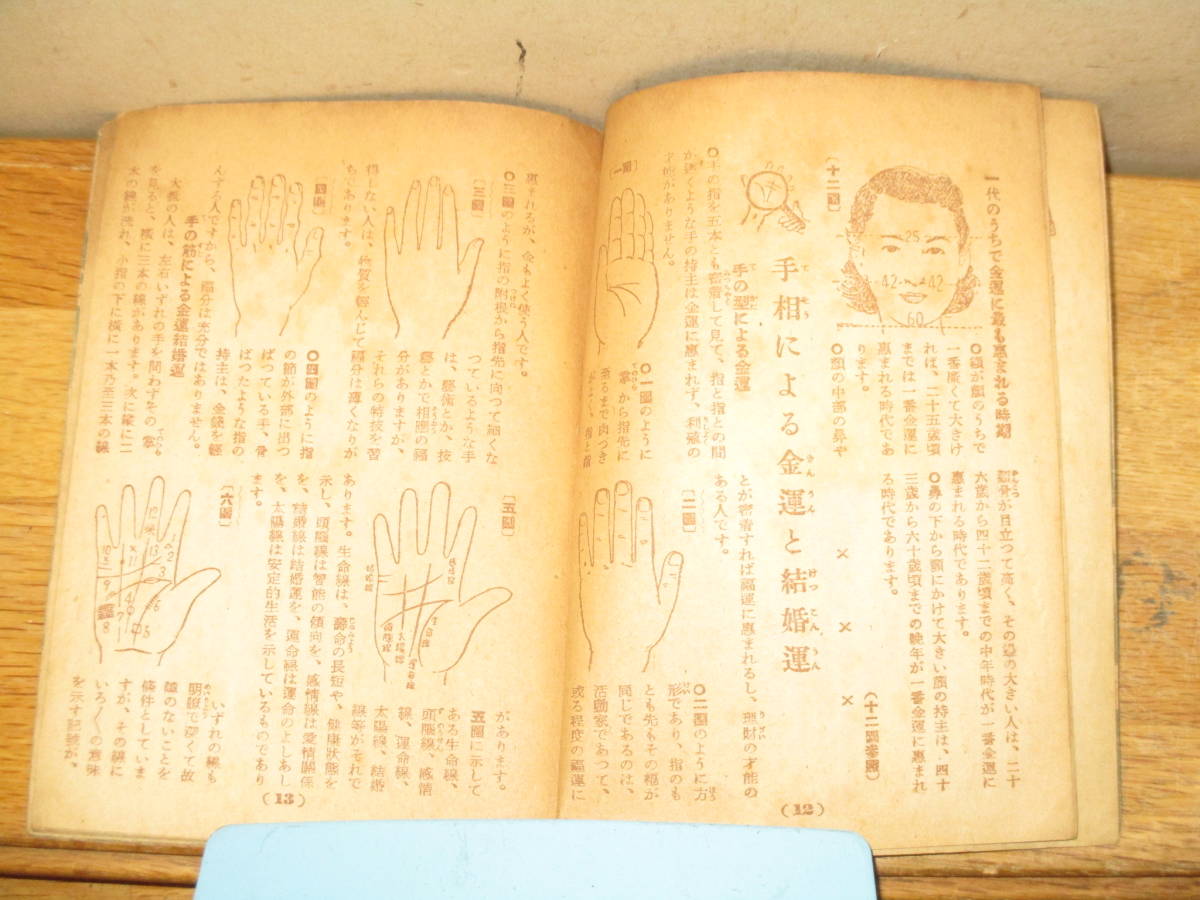 一代のうちで金運に最も惠まれる時期
〔十二圖〕
25
42
42
60
○額が顏のうちで
一番廣くて大きけ
れば、二十五歲頃
までは一番金運に
惠まれる時代であ
ります。
○顏の中部の鼻や
顴骨が目立つて高く、その鼻の大きい人は、二十
六歲から四十二歲頃までの中年時代が一番金運に
惠まれる時代であります。
○鼻の下から顎にかけて大きい顏の持主は、四十
三歲から六十歲頃までの晚年が一番金運に惠まれ
る時代であります。
(十二圖參圖)
×
×
×
手相による金運と結婚運
手の型による金運
○手の指を五本とも密着して見て、指と指との間
が透くような手の持主は金運に惠まれず、利殖の
才能がありません。
〔一圖〕
○一圖のように
掌から指先に
至るまで肉づき
がよく、指と指
とが密着すれば福運に惠まれるし、理財の才能の
ある人です。
〔二圖〕
○二圖のように方
形であり、指のも
とも先もその幅が
同じであるのは、
活動家であつて、
或る程度の福運に
(12)
惠まれるが、金もよく使う人です。
○三圖のように指の附根から指先に向つて細くな
〔三圖〕
つているような手
は、藝術とか、技
藝とかで相應の福
分がありますが、
それらの特技を習
得しない人は、物質を輕んじて福分は薄くなりが
ちであります。
〔四圖〕
○四圖のように指
の節が外部に出つ
ぱつている手、骨
ばつたような指の
持主は、金錢を輕
んずる人ですから、福分は充分ではありません。
手の筋による金運結婚運
大抵の人は、左右いずれの手を問わずその掌
を見ると、橫に三本の線があります。次に縱に二
本の線が現れ、小指の下に橫に一本乃至三本の線
〔五圖〕
があります。
五圖に示して
ある生命線、
頭腦線、感情
線、運命線、
太陽線、結婚
線等がそれで
あります。生命線は、壽命の長短や、健康狀態を
示し、頭腦線は智能の傾向を、感情線は愛情關係
を、結婚線は結婚運を、運命線は運命のよしあし
を、太陽線は安定的生活を示しているものであり
ます。
〔六圖〕
いずれの線も
明瞭で深くて故
障のないことを
條件としていま
すが、その線に
いろ〱の意味
を示す記號が、
(13)